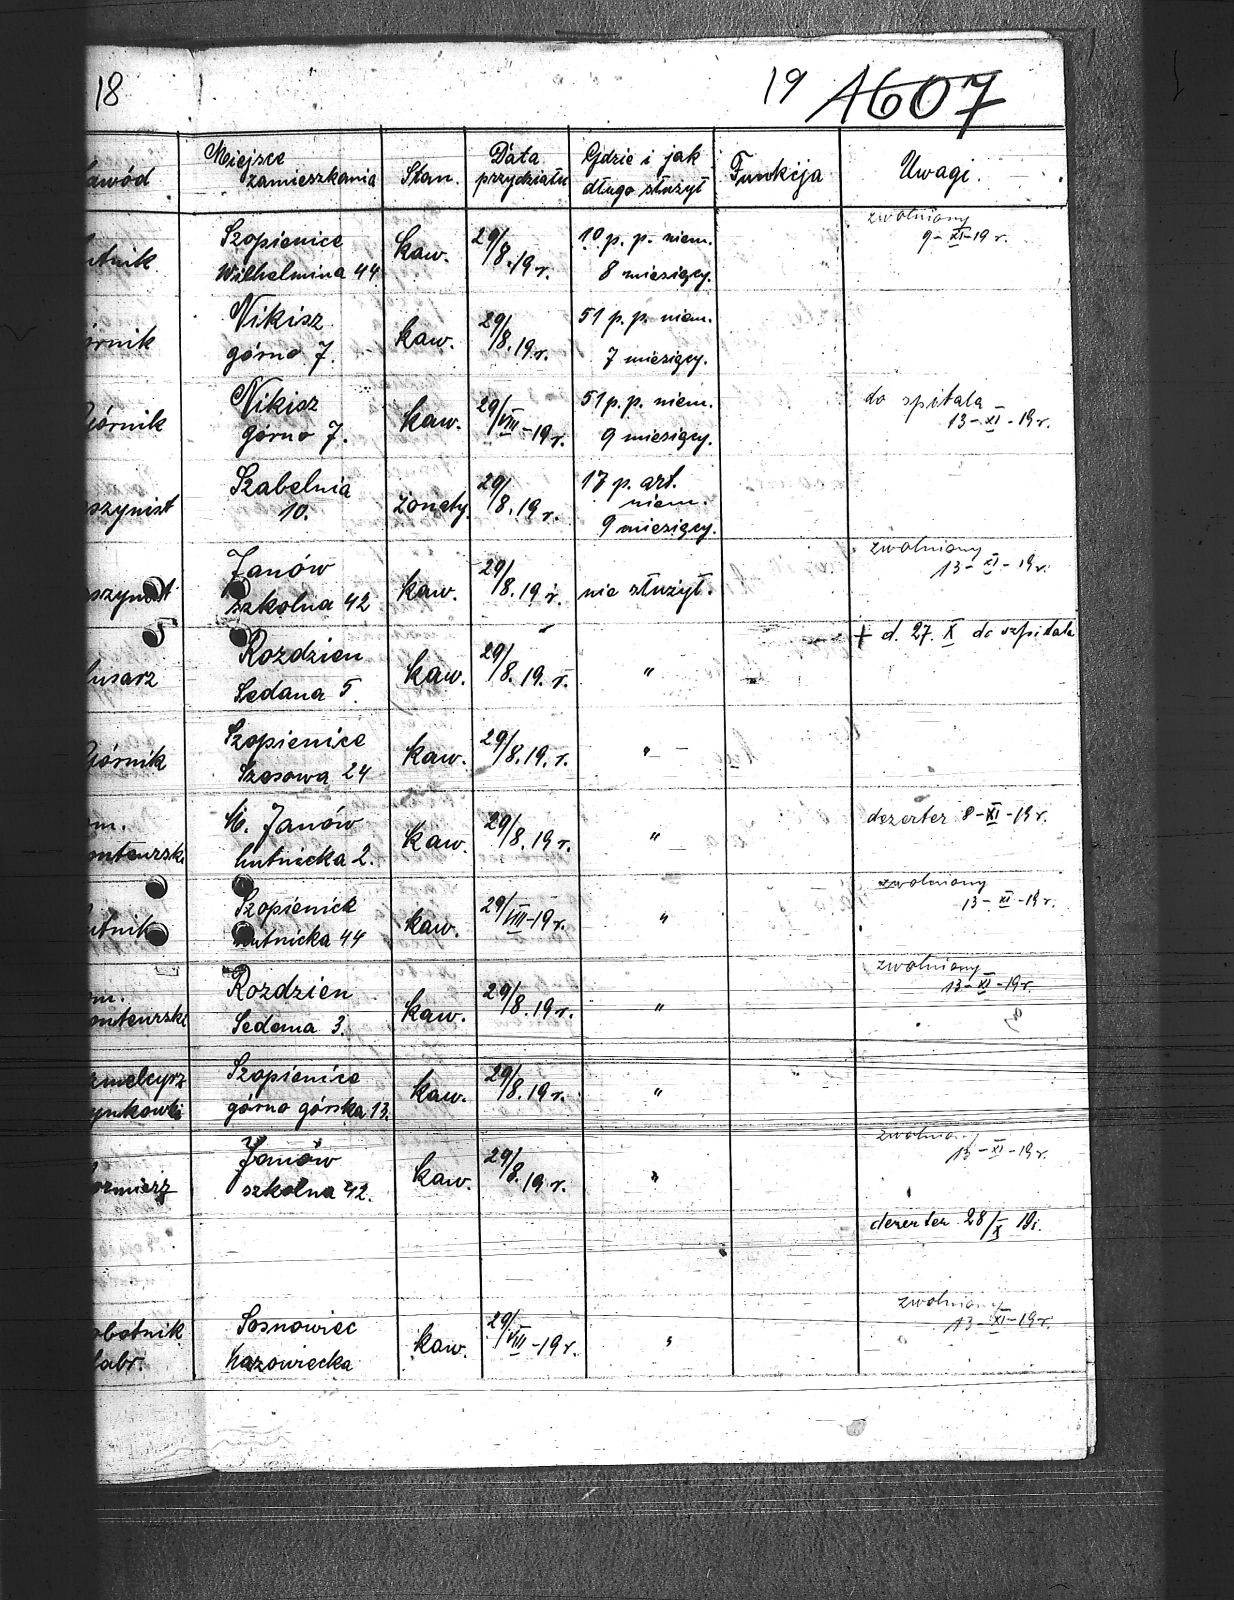 18
19 1607
awód Miejsce zamieszkania Stan. Data przydziału Gdzie i jak długo służył Funkcja Uwagi.
utnik Szopienice kaw. 29/8.19 r. 10 p. p. niem. zwolniony
Wilhelmina 44 8 miesięcy. 9-XI-19 r.
órnik Nikisz kaw. 29/8.19 r. 51 p. p. niem.
górno 7. 7 miesięcy.
Górnik Nikisz kaw. 29/VIII-19 r. 51 p. p. niem. do spitala
górno 7. 9 miesięcy. 13-XI-19 r.
szynist Szabelnia żonaty. 29/8.19 r. 17 p. art.
10. niem.
9 miesięcy.
szynist Janów kaw. 29/8.19 r. nie służył. zwolniony
szkolna 42 13-XI-19 r.
lusarz Rozdzien kaw. 29/8.19. r. " + d. 27. X do szpitala
Sedana 5.
Górnik Szopienice kaw. 29/8.19. r. "
Szosowa 24
om. M. Janów kaw. 29/8.19 r. " dezerter 8-XI-19 r.
onteurski hutnicka 2.
utnik Szopienice kaw. 29/VIII-19 r. " zwolniony
hutnicka 44 13-XI-19 r.
om. Rozdzien kaw. 29/8.19 r. " zwolniony
onteurski Sedana 3. 13-XI-19 r.
zmelcyrz Szopienice kaw. 29/8.19 r. "
ynkowki górno górska 13.
ormierz Janów kaw. 29/8.19 r. "
szkolna 42. 13-XI-19 r.
dezerter 28/X 19 r.
obotnik Sosnowiec kaw. 29/VIII-19 r. " zwolniony
fabr. Mazowiecka 13-XI-19 r.